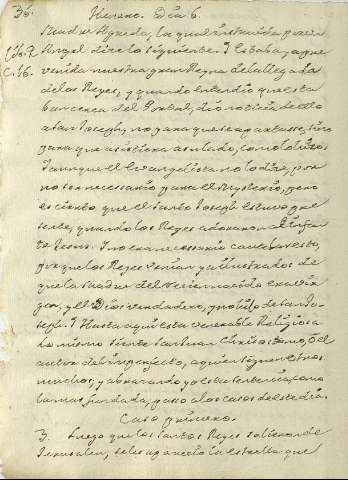 36. Henero. Dia 6.
Madre Agreda, la qual instruida por un
Angel dice lo siguiente: I estaba ya pre
venida nuestra gran Reyna de la llegada
de los Reyes, y quando entendio que esta
ban cerca del Portal, dio noticia de ello
a San Joseph, no para que se apartasse, sino
para que asistiera a su lado, como lo hizo.
I aunque el Evangelista no lo dice, por
no ser necessario para el Mysterio, pero
es cierto que el Santo Joseph estuvo pre
sente, quando los Reyes adoraron al Infan
te Jesus. I no era necessario cautelar esto,
porque los Reyes venian ya illustrados de
que la Madre del recien nacida era Vir
gen, y el Dios verdadero, y no hijo de San Jo
seph. I Hasta aqui esta venerable Religiosa
Lo mismo siente San Juan Chrisostomo, o el
autor del imperfecto, a quien siguen otros
muchos; y abrazando yo esta sentencia, como
la mas fundada, passo a los casos de este dia.
Caso primero.
3. Luego que los Santos Reyes salieron de
Jerusalen, se les aparecio la estrella que